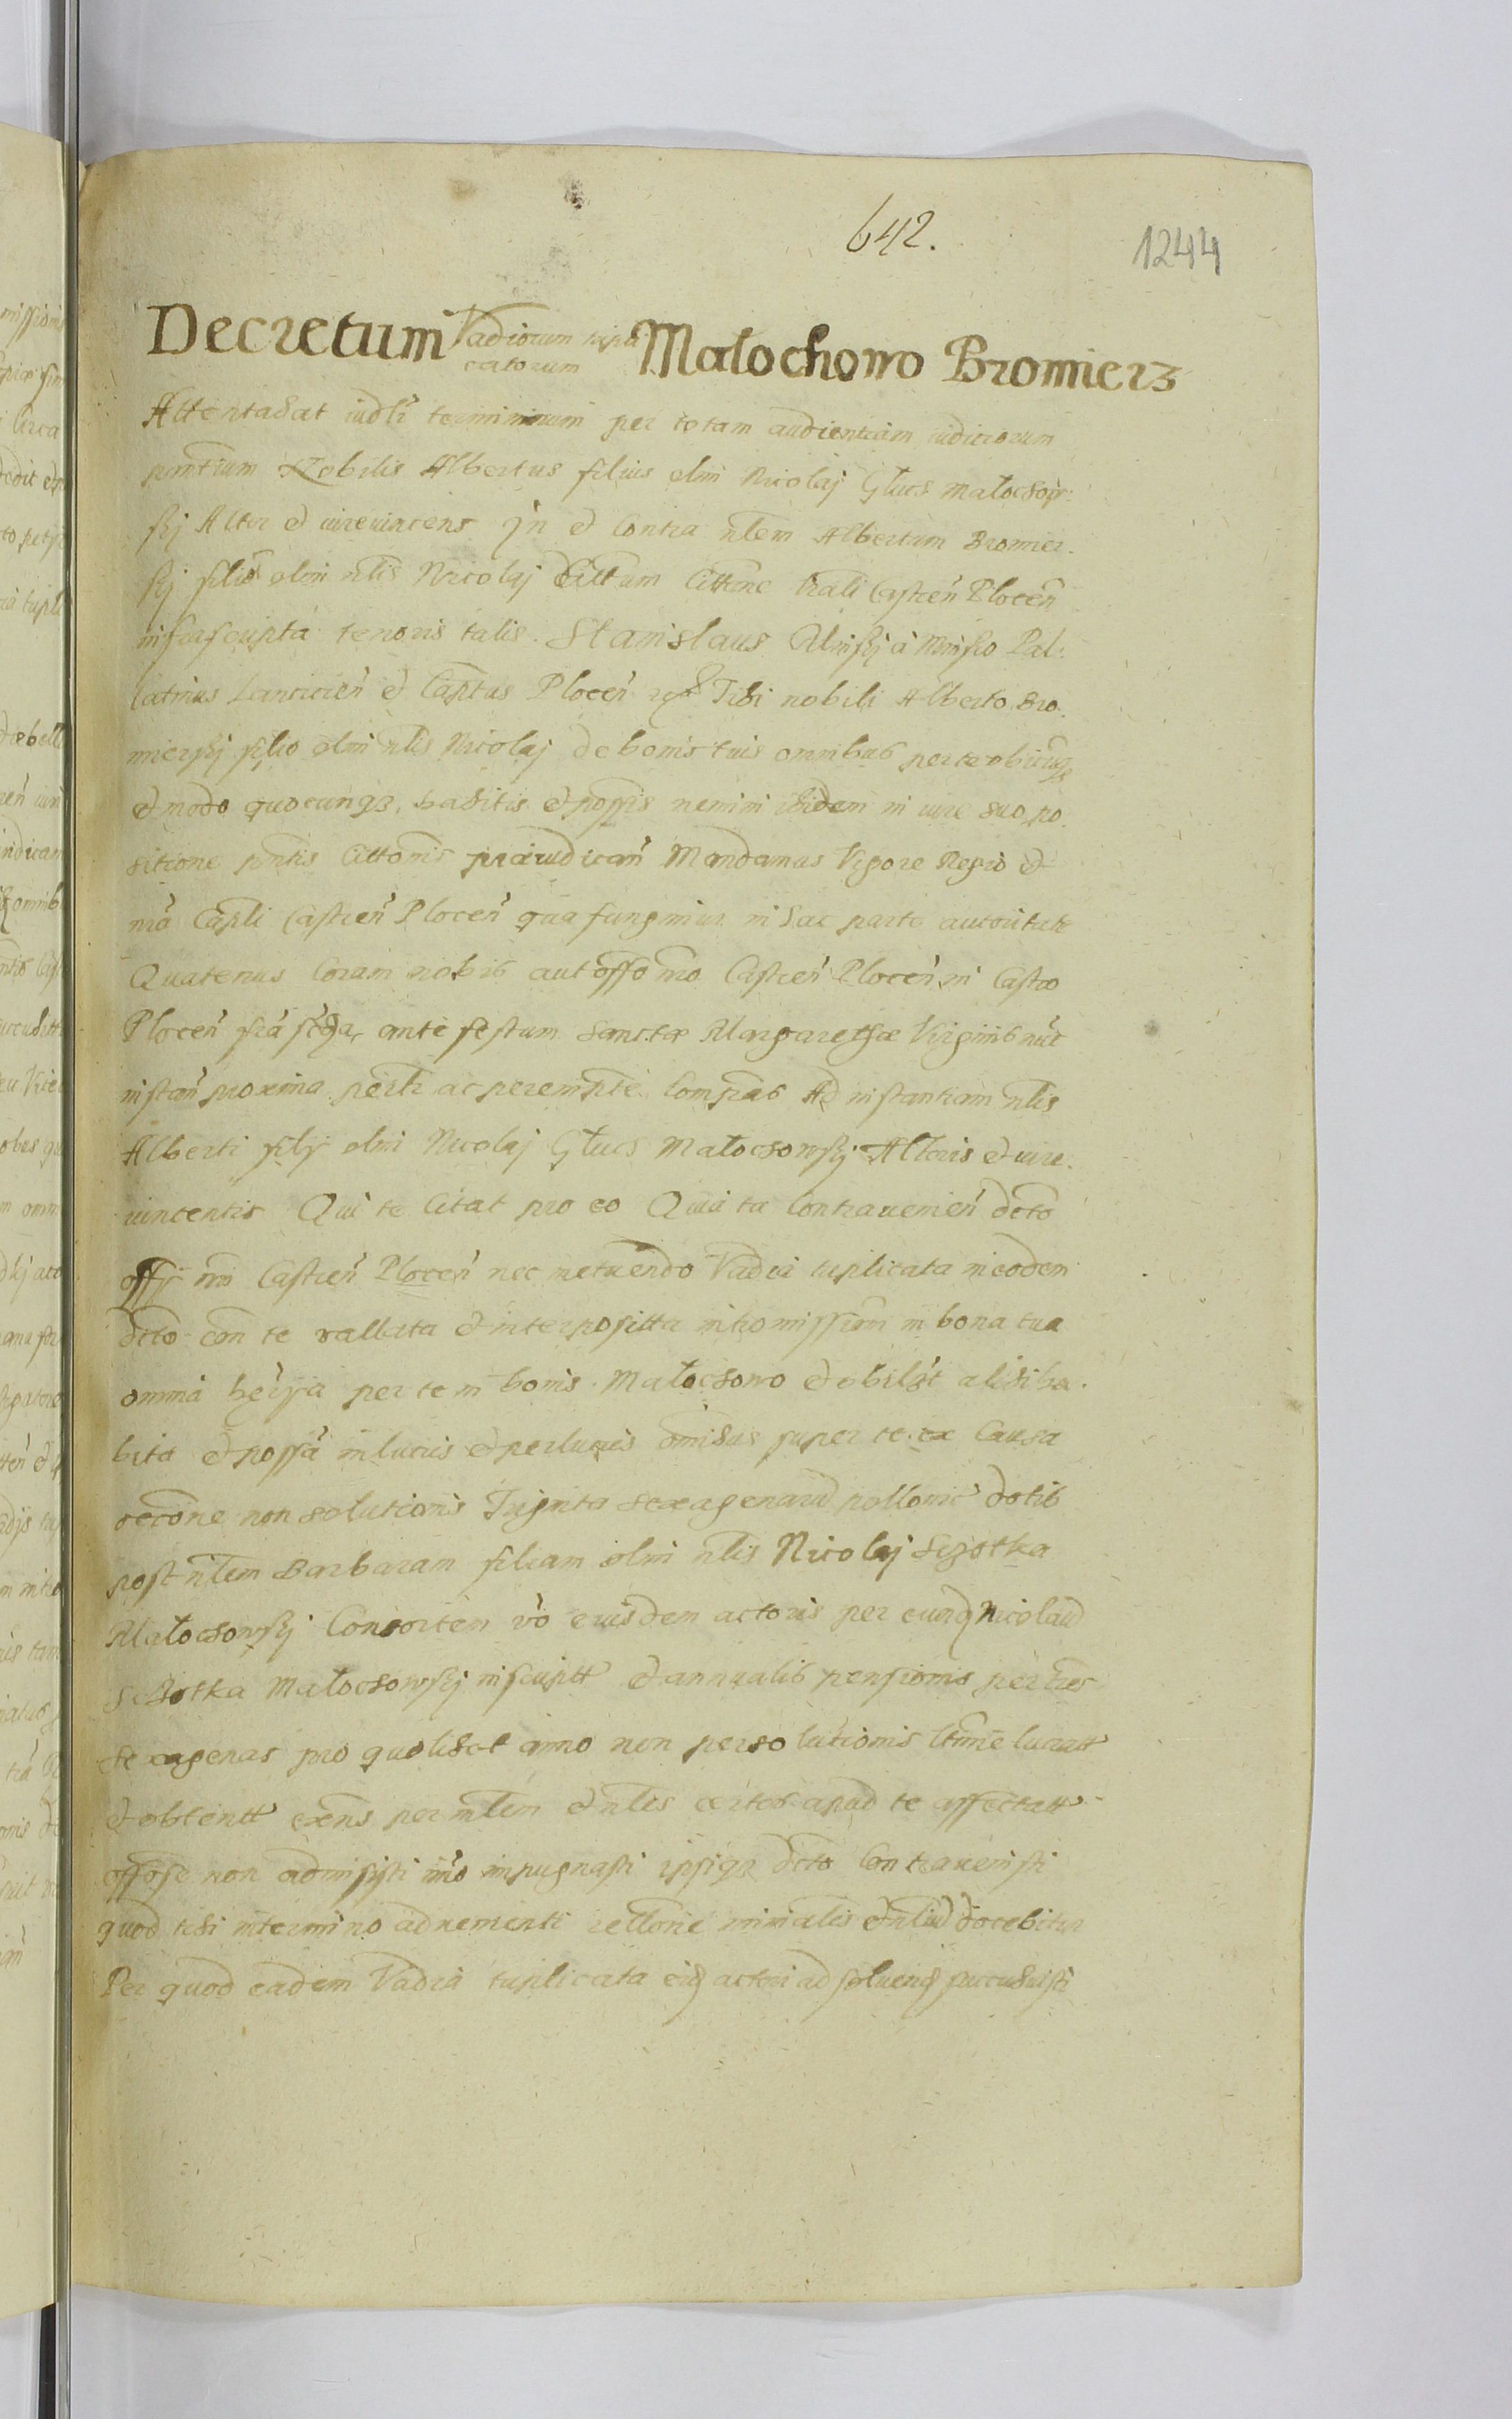 642.
1244
Decretum Vadiorum tripli
catorum Małochowo Bromierz
Attentabat iudlr terminum per totam audientiam iudiciorum
pnntium Nobilis Albertus filius olim Nicolaj Głuch Małochow
skj Actor et iurevincens in et contra nlem Albertum Bromier.
skj filiū olim nlis Nicolaj Cittatum Cittone lrali Castren Plocen
infrascripta tenoris talis. Stanislaus Minskj a Minsko Pal:
latinus Lancicien et Captus Plocen Tibi nobili Alberto Bro.
mierskj filio olim nlis Nicolaj de bonis tuis omnibus per te ubicunq
et modo quocunqz. habitis et possis nemini ibidem in iure suo po.
sitione pntis Cittonis praeiudican Mandamus Vigore Regio et
nra Capli Castren Plocen qua fungimur in hac parte autoritate
Quatenus Coram nobis aut offo nro Castren Plocen in Castro
Plocen fria ante festum Sanctae Margarethae Virginis nuc
instan proxima perlr ac peremptē. Compas Ad instantiam nlis
Alberti filij olim Nicolaj Głuch Małochowskj Actoris et iure.
vincentis Qui te Citat pro eo Quia tu Contravenien dcto
offij nri Castren Plocen nec metuendo Vadia triplicata in eodem
dcto con te vallata et interposita intromissiom in bona tua
omnia herija per te in bonis. Małochowo et ubilgt alibi ha.
bita et possa in lucris et perlucris omibus super te ex Causa
non solutionis Triginta sexagenarū pollonic dotis
post nlem Barbaram filiam olim nlis Nicolaj Szotka
Małochowskj Consortem vo eiusdem actoris per eundq Nicolaū
Szotka Małochowskj inscriptt et annualis pensionis per tres
sexagenas pro quolibet anno non persolutionis ltime lucratt
et obtentt exens per mlem et nles certos apud te affectatt
offose non admisisti imo impugnasti ipsiqz dcto Contravenisti
quod tibi in termino advenienti rellone mirialis et nliū docebitur
Per quod eadem Vadia triplicata eidq actori ad solvend succubuisti